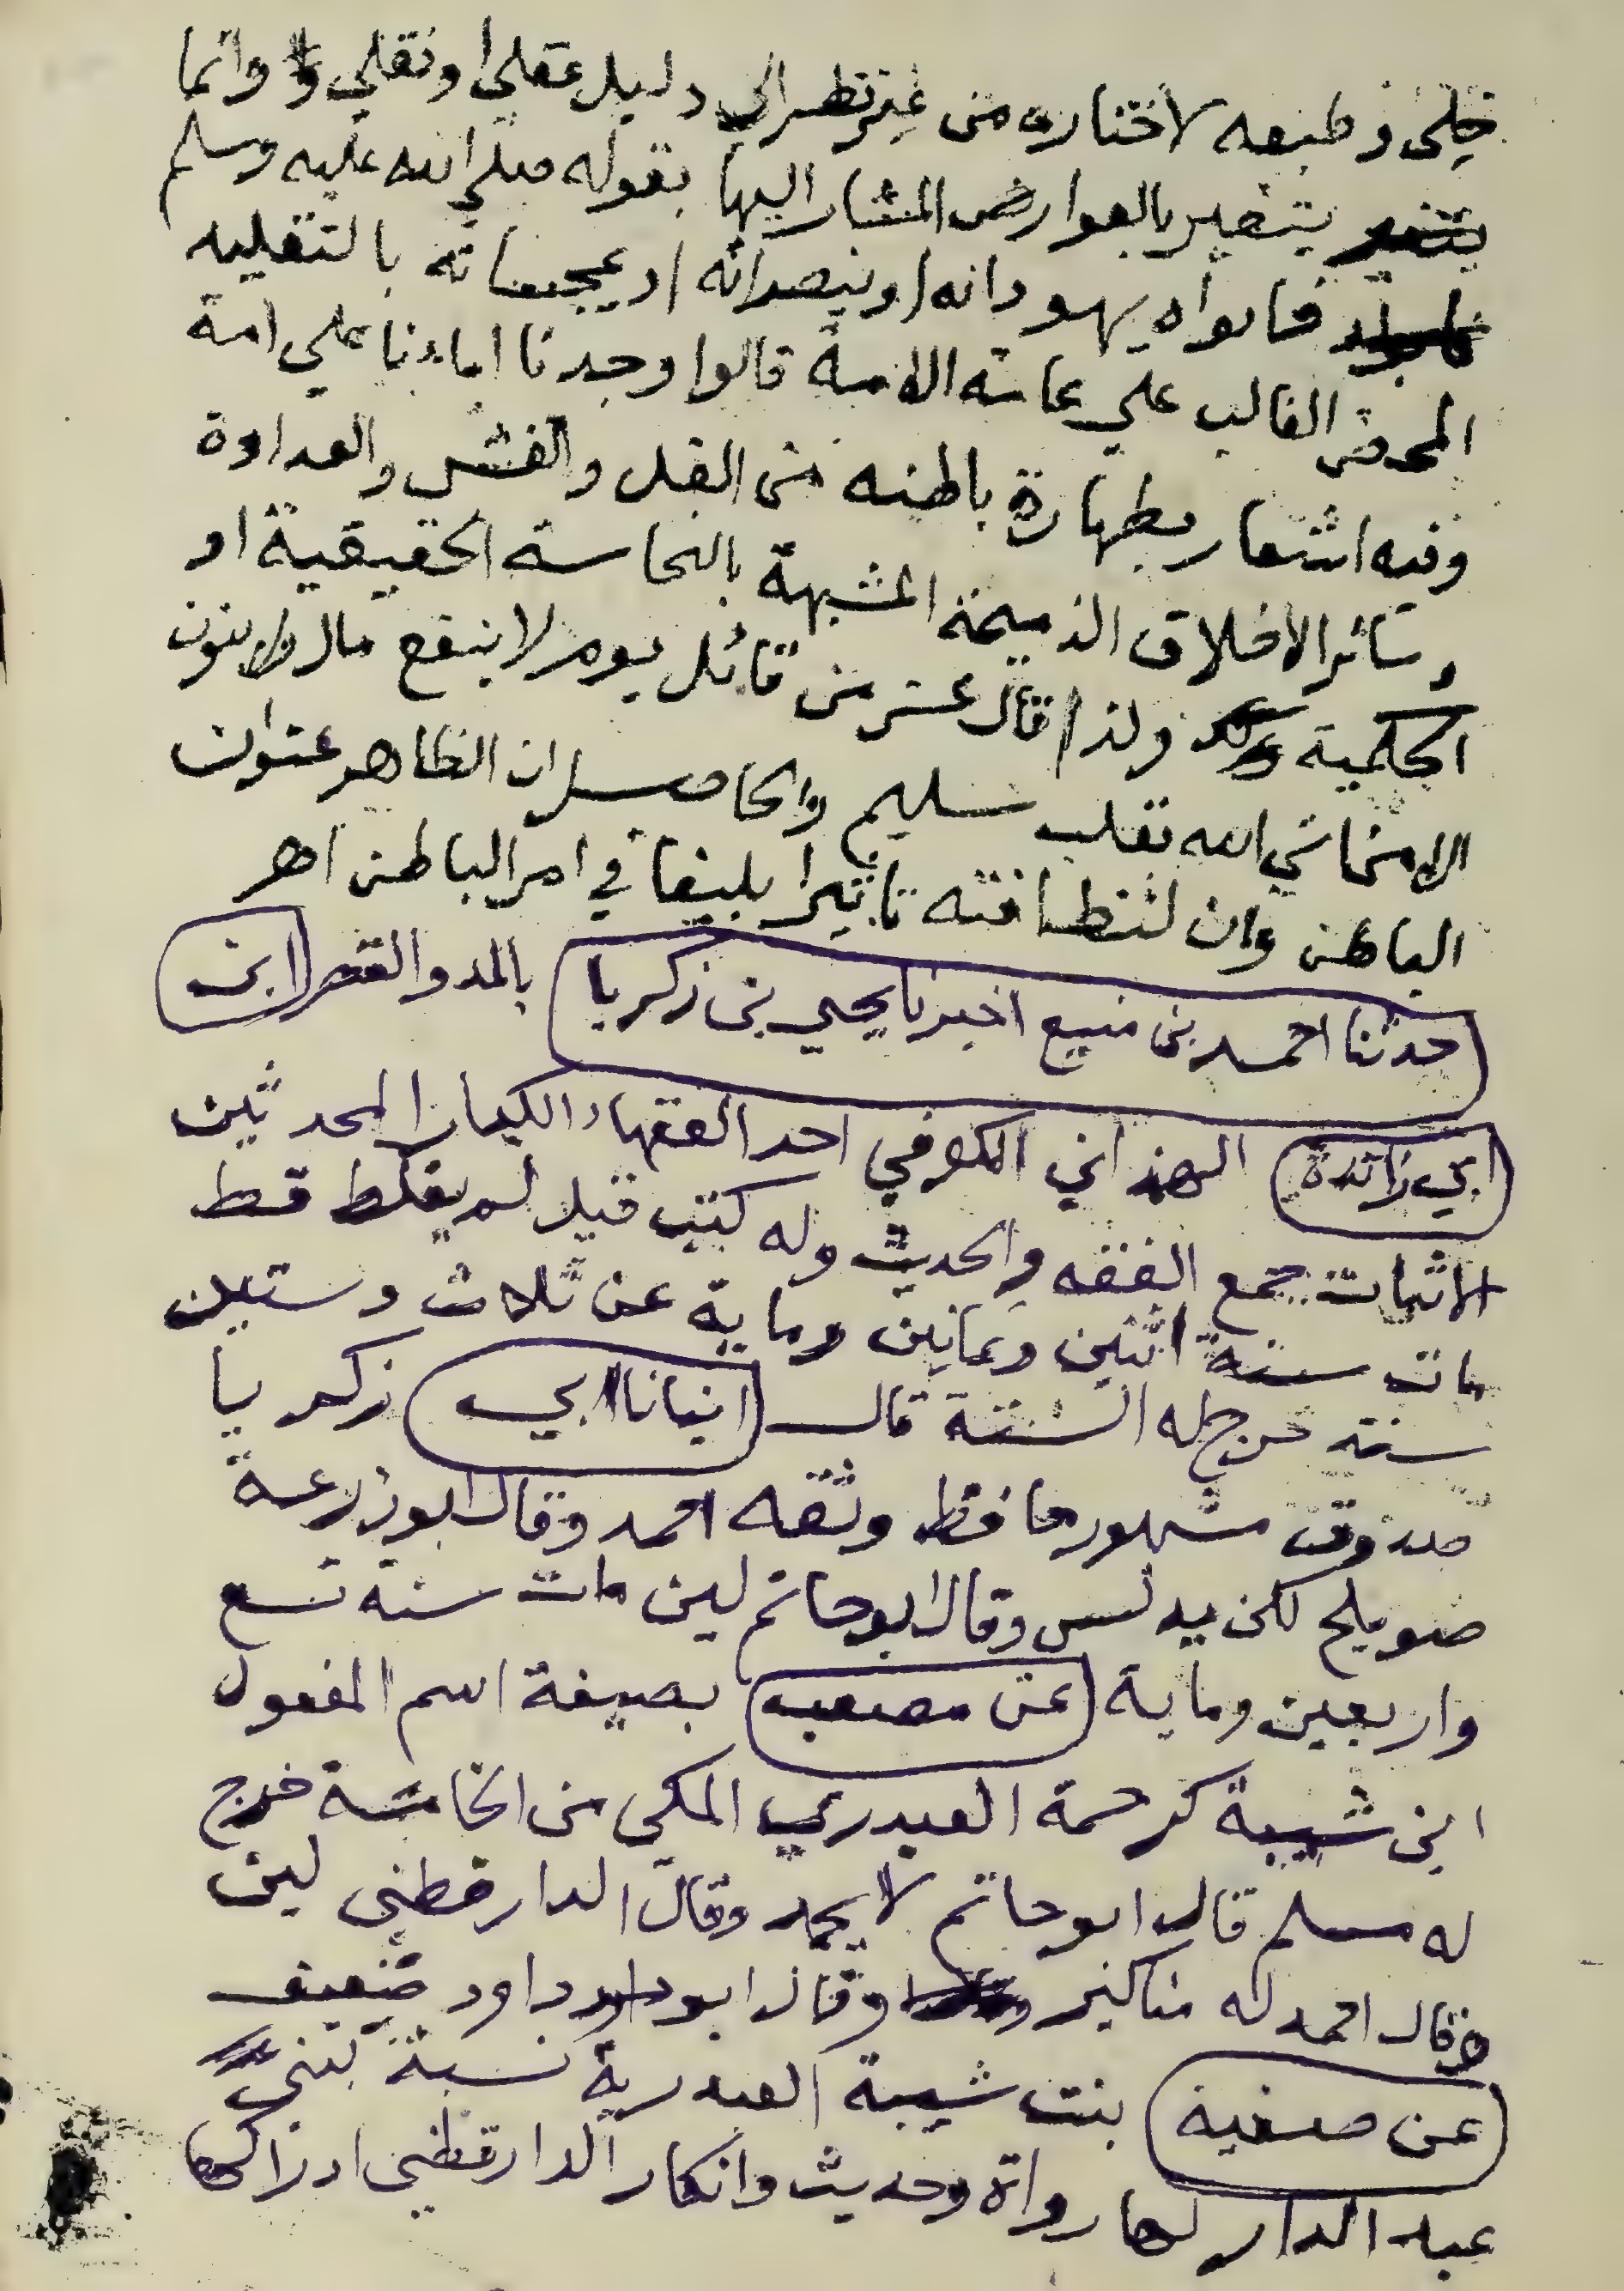 خلى وطبعه لاختاره من غير نظر الي دليل عقلي او نقلي وانما
يتغير بالعوارض المشار اليها بقوله صلى الله عليه وسلم
فابواه يهودانه او ينصرانه او يمجسانه بالتقليد
المحض الغالب علي عامة الامة قالوا وجدنا اباءنا علي امة
وفيه اشعار بطهارة باطنه من الغل والغش والعداوة
وسائر الاخلاق الذميمة المشبهة بالنجاسة الحقيقية او
الحكمية ولذا قال عز من قائل يوم لا ينفع مال ولا بنون
الا من اتي الله بقلب سليم والحاصل ان الظاهر عنوان
الباطن وان لنظافته تاثيرا بليغا في امر الباطن اهـ
حدثنا احمد بن منيع اخبرنا يحيي بن زكريا بالمد والقصر ابن
ابي زائدة الهمداني الكوفي احد الفقهاء الكبار المحدثين
الاثبات جمع الفقه والحديث وله كتب قيل لم يغلط قط
مات سنة اثنين وثمانين وماية عن ثلاث وستين
سنة خرج له الستة قال انبانا ابي زكريا
صدوق مشهور حافظ وثقه احمد وقال ابو زرعة
صويلح لكن يدلس وقال ابو حاتم لين مات سنة تسع
واربعين وماية عن مصعب بصيغة اسم المفعول
ابن شيبة كرحمة العبدري المكي من الخامسة خرج
له مسلم قال ابو حاتم لا يحمد وقال الدارقطني لين
وقال احمد له مناكير وقال ابو داود ضعيف
عن صفية بنت شيبة العبدرية نسبة لبني
عبد الدار لها رواة وحديث وانكار الدارقطني ادراكها